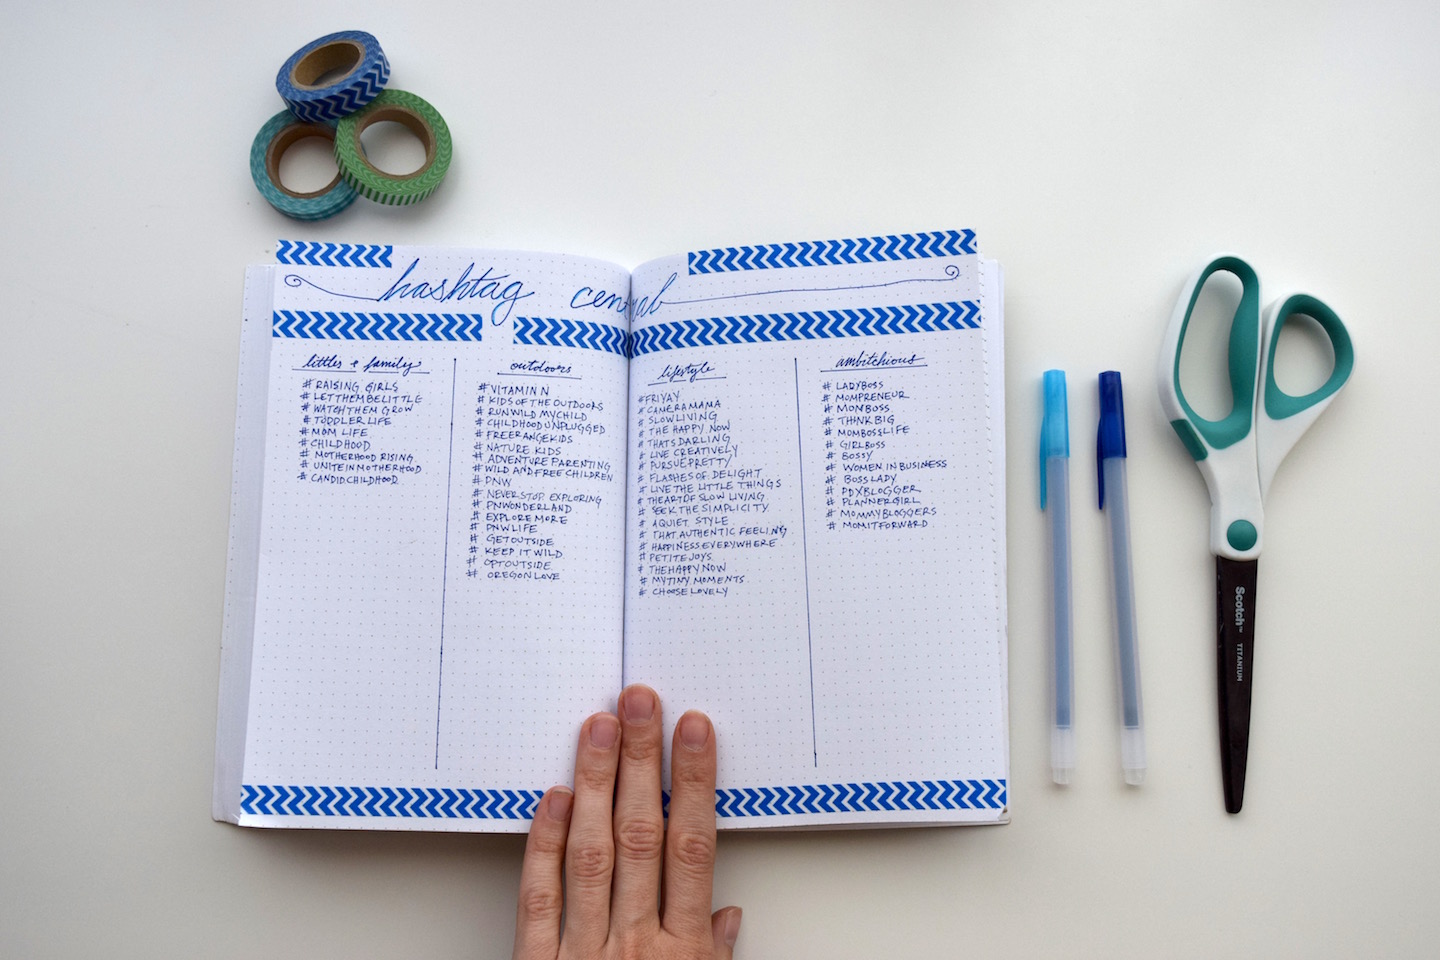 hashtag central
littles & family
# RAISING GIRLS
# LETTHEMBELITTLE
# WATCHTHEM GROW
# TODDLERLIFE
# MOM LIFE
# CHILDHOOD
# MOTHERHOOD RISING
# UNITEINMOTHERHOOD
# CANDIDCHILDHOOD
outdoors
# VITAMIN N
# KIDS OF THE OUTDOORS
# RUNWILD MYCHILD
# CHILDHOODUNPLUGGED
# FREERANGEKIDS
# NATURE KIDS
# ADVENTURE PARENTING
# WILD AND FREE CHILDREN
# PNW
# NEVERSTOP EXPLORING
# PNWONDERLAND
# EXPLOREMORE
# PNWLIFE
# GETOUTSIDE
# KEEP IT WILD
# OPTOUTSIDE
# OREGONLOVE
lifestyle
#FRIYAY
# CAMERAMAMA
# SLOWLIVING
# THE HAPPY NOW
# THATSDARLING
# LIVE CREATIVELY
# PURSUEPRETTY
# FLASHES OF DELIGHT
# LIVE THE LITTLE THINGS
# THEARTOF SLOW LIVING
# SEEK THE SIMPLICITY
# AQUIET STYLE
# THAT AUTHENTIC FEELING
# HAPPINESSEVERYWHERE
# PETITEJOYS
# THEHAPPYNOW
# MYTINY MOMENTS
# CHOOSELOVELY
ambitchious
# LADYBOSS
# MOMPRENEUR
# MOMBOSS
# THINKBIG
# MOMBOSSLIFE
# GIRLBOSS
# BOSSY
# WOMEN IN BUSINESS
# BOSSLADY
# PDXBLOGGER
# PLANNERGIRL
# MOMMYBLOGGERS
# MOMITFORWARD
Scotch™ TITANIUM